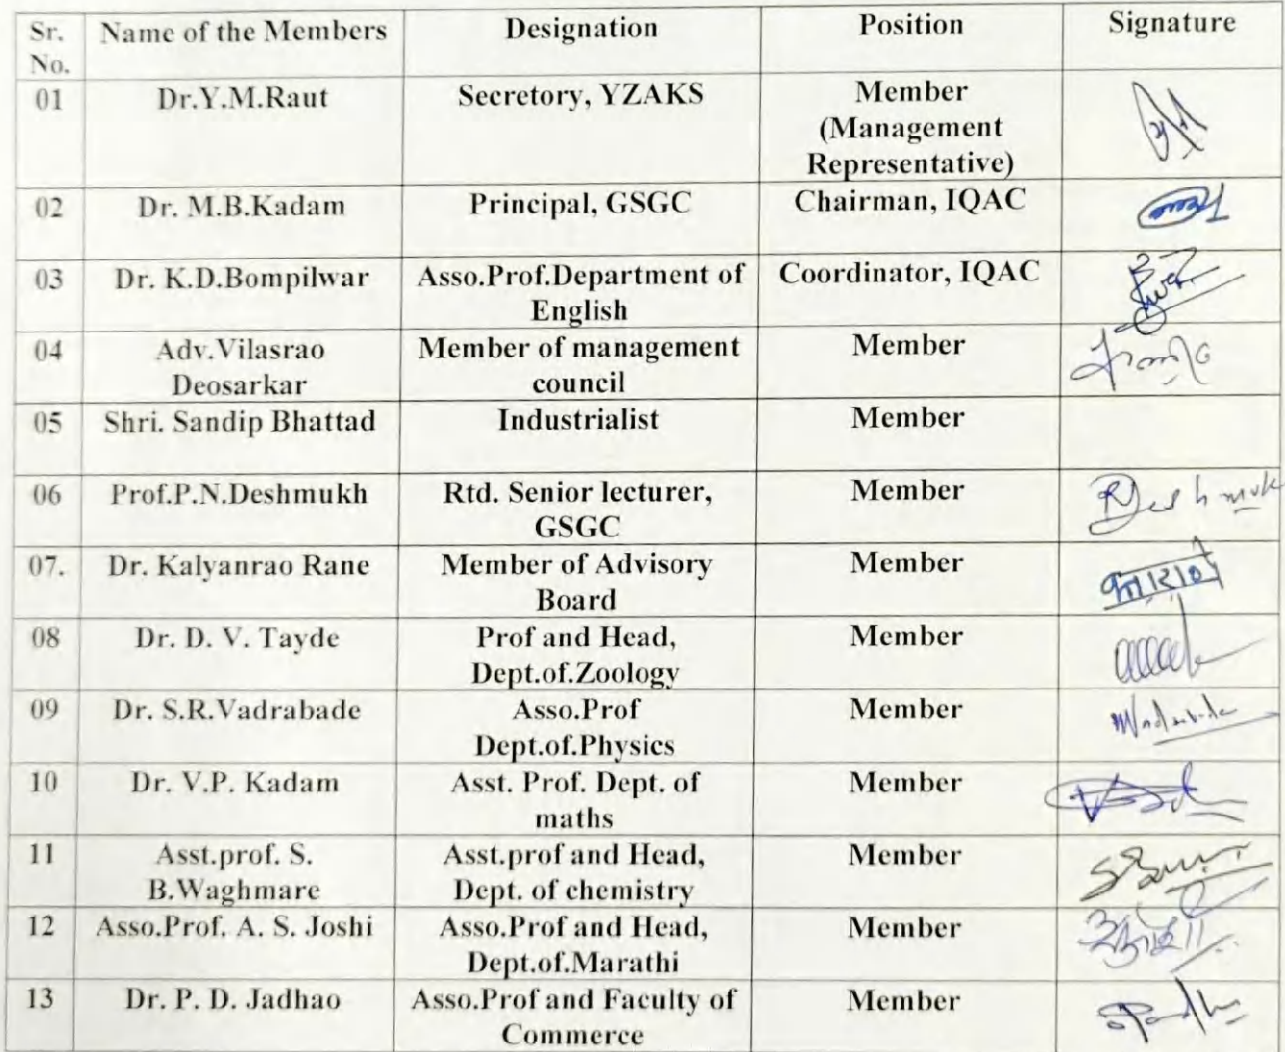 Sr. No. Name of the Members Designation Position Signature
01 Dr.Y.M.Raut Secretory, YZAKS Member (Management Representative)
02 Dr. M.B.Kadam Principal, GSGC Chairman, IQAC
03 Dr. K.D.Bompilwar Asso.Prof.Department of English Coordinator, IQAC
04 Adv.Vilasrao Deosarkar Member of management council Member
05 Shri. Sandip Bhattad Industrialist Member
06 Prof.P.N.Deshmukh Rtd. Senior lecturer, GSGC Member
07. Dr. Kalyanrao Rane Member of Advisory Board Member
08 Dr. D. V. Tayde Prof and Head, Dept.of.Zoology Member
09 Dr. S.R.Vadrabade Asso.Prof Dept.of.Physics Member
10 Dr. V.P. Kadam Asst. Prof. Dept. of maths Member
11 Asst.prof. S. B.Waghmare Asst.prof and Head, Dept. of chemistry Member
12 Asso.Prof. A. S. Joshi Asso.Prof and Head, Dept.of.Marathi Member
13 Dr. P. D. Jadhao Asso.Prof and Faculty of Commerce Member